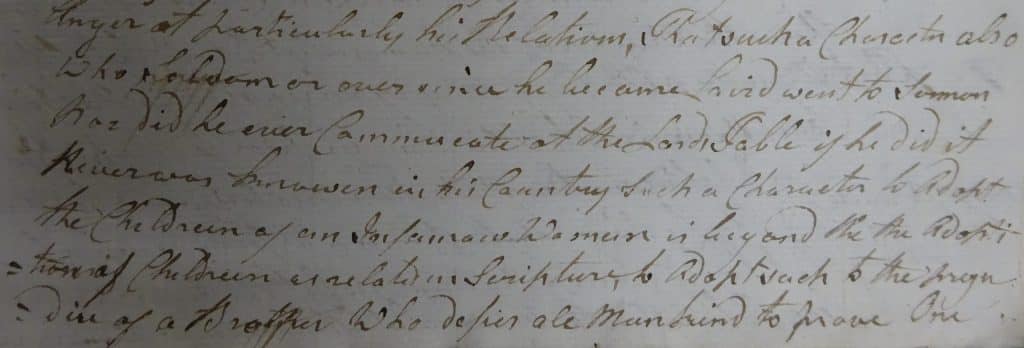 Anger at particularly his Relations, That such a Character also
Who Seldom or ever since he became Laird went to Sermon
Nor did he ever Communicate at the Lords Table if he did it
Never was knowen in his Country Such a Character to Adopt
the Children of an Infamous Woman is beyond the the Adopti
=tion of Children as related in Scripture, to Adopt such to the preju
=dice of a Brother Who defies all Mankind to prove One